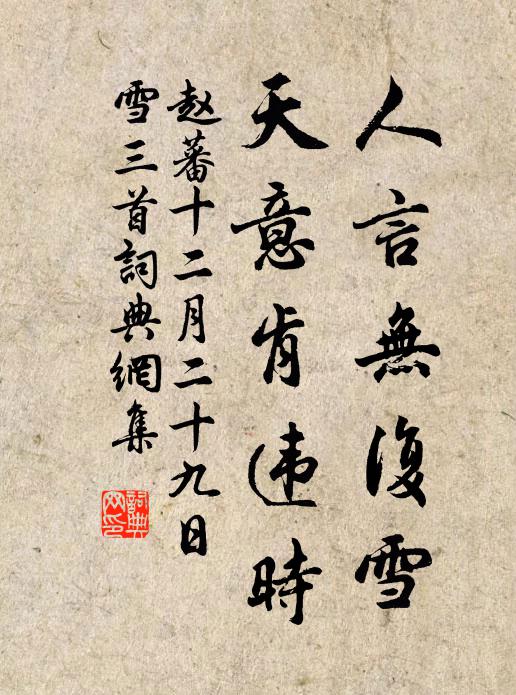 人言無復雪
天意肯违時
赵蕃十二月二十九日
雪三首詞典網集
詞典网印